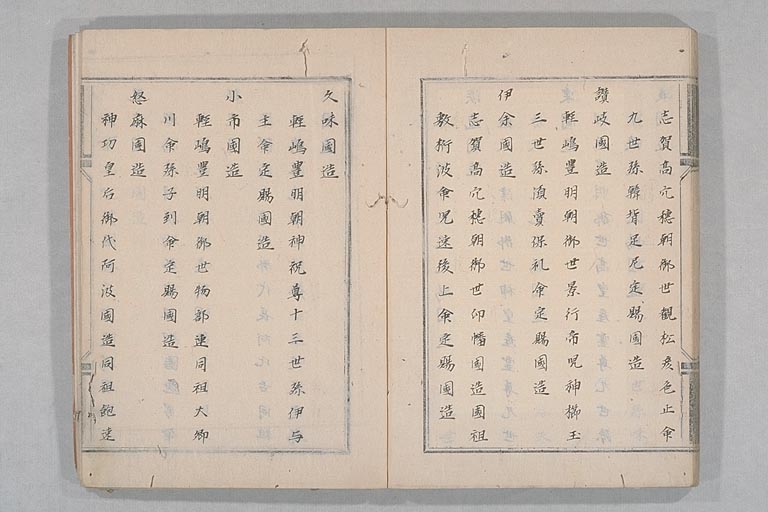 志賀髙穴穗朝御世觀松彦色止命
九世孫韓背足尼定賜國造
讃岐國造
輕嶋豊明朝御世景行帝児神櫛王
三世孫湏賣保礼命定賜國造
伊余國造
志賀髙穴穗朝御世印幡國造國祖
敷桁波命児速後上命定賜國造
久味國造
輕嶋豊明朝神祝尊十三世孫伊与
主命定賜國造
小市國造
輕嶋豊明朝御世物部連同祖大御
川命孫子到命定賜國造
怒麻國造
神功皇后御代阿波國造同祖飽速